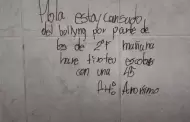 Hola estoy cansado
del bullying por parte de
los de 2°F mañana
hare tiroteo escolar
con una 45
Att: Anonimo